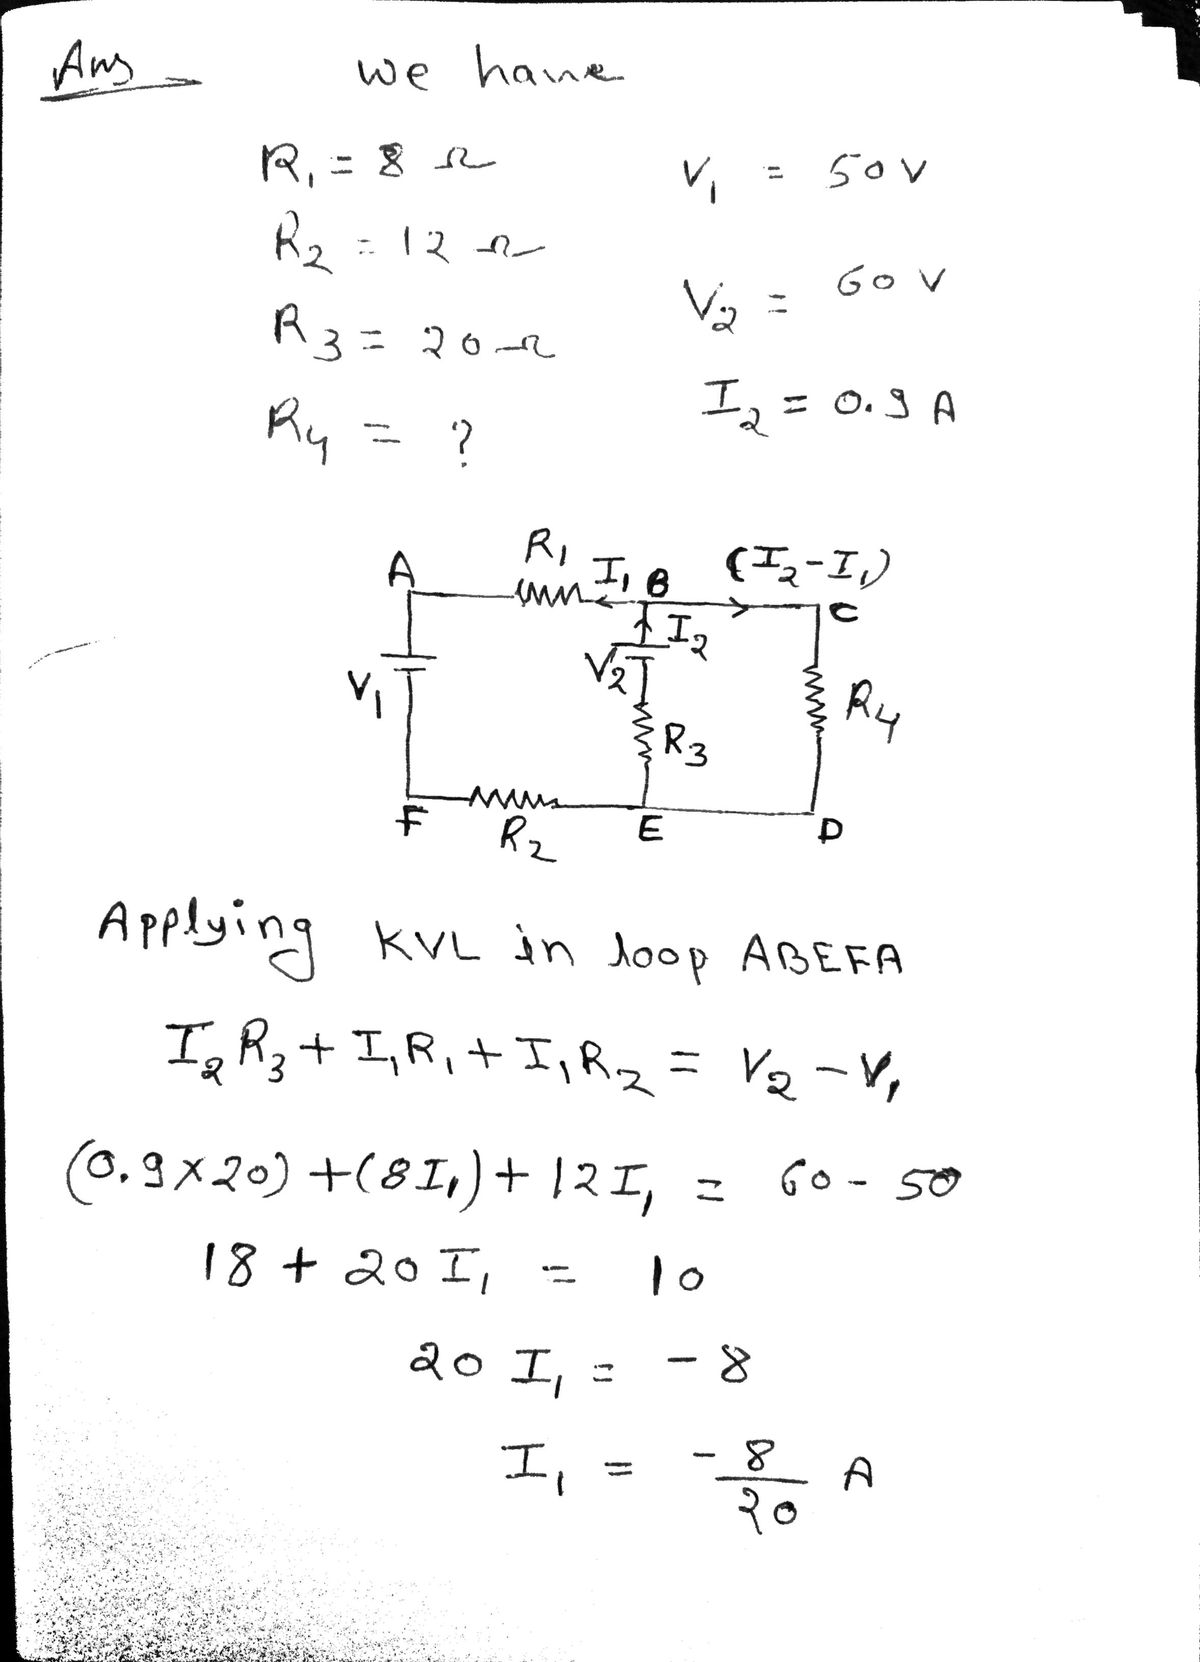 Ans we have
R₁ = 8 Ω V₁ = 50 V
R₂ = 12 Ω
V₂ = 60 V
R₃ = 20 Ω
I₂ = 0.9 A
R₄ = ?
R₁ (I₂-I₁)
A I₁ B
C
I₂
V₂
V₁ R₄
R₃
F E D
R₂
Applying KVL in loop ABEFA
I₂R₃ + I₁R₁ + I₁R₂ = V₂ - V₁
(0.9×20) + (8I₁) + 12I₁ = 60 - 50
18 + 20 I₁ = 10
20 I₁ = - 8
I₁ = -8/20 A